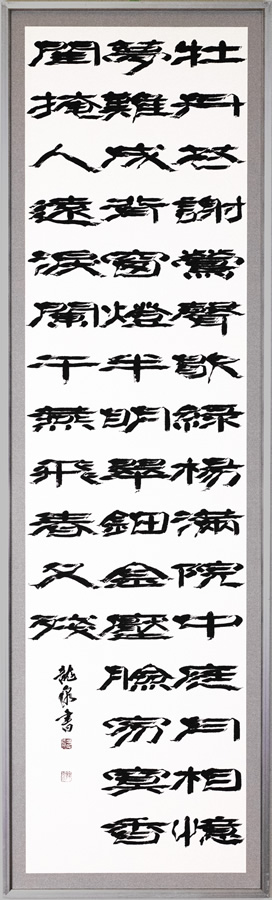 牡丹花謝鶯聲歇綠楊滿院中庭月相憶
夢難成背窗燈半明翠鈿金壓臉寂寞香
閨掩人遠淚闌干燕飛春又殘
龍泉書